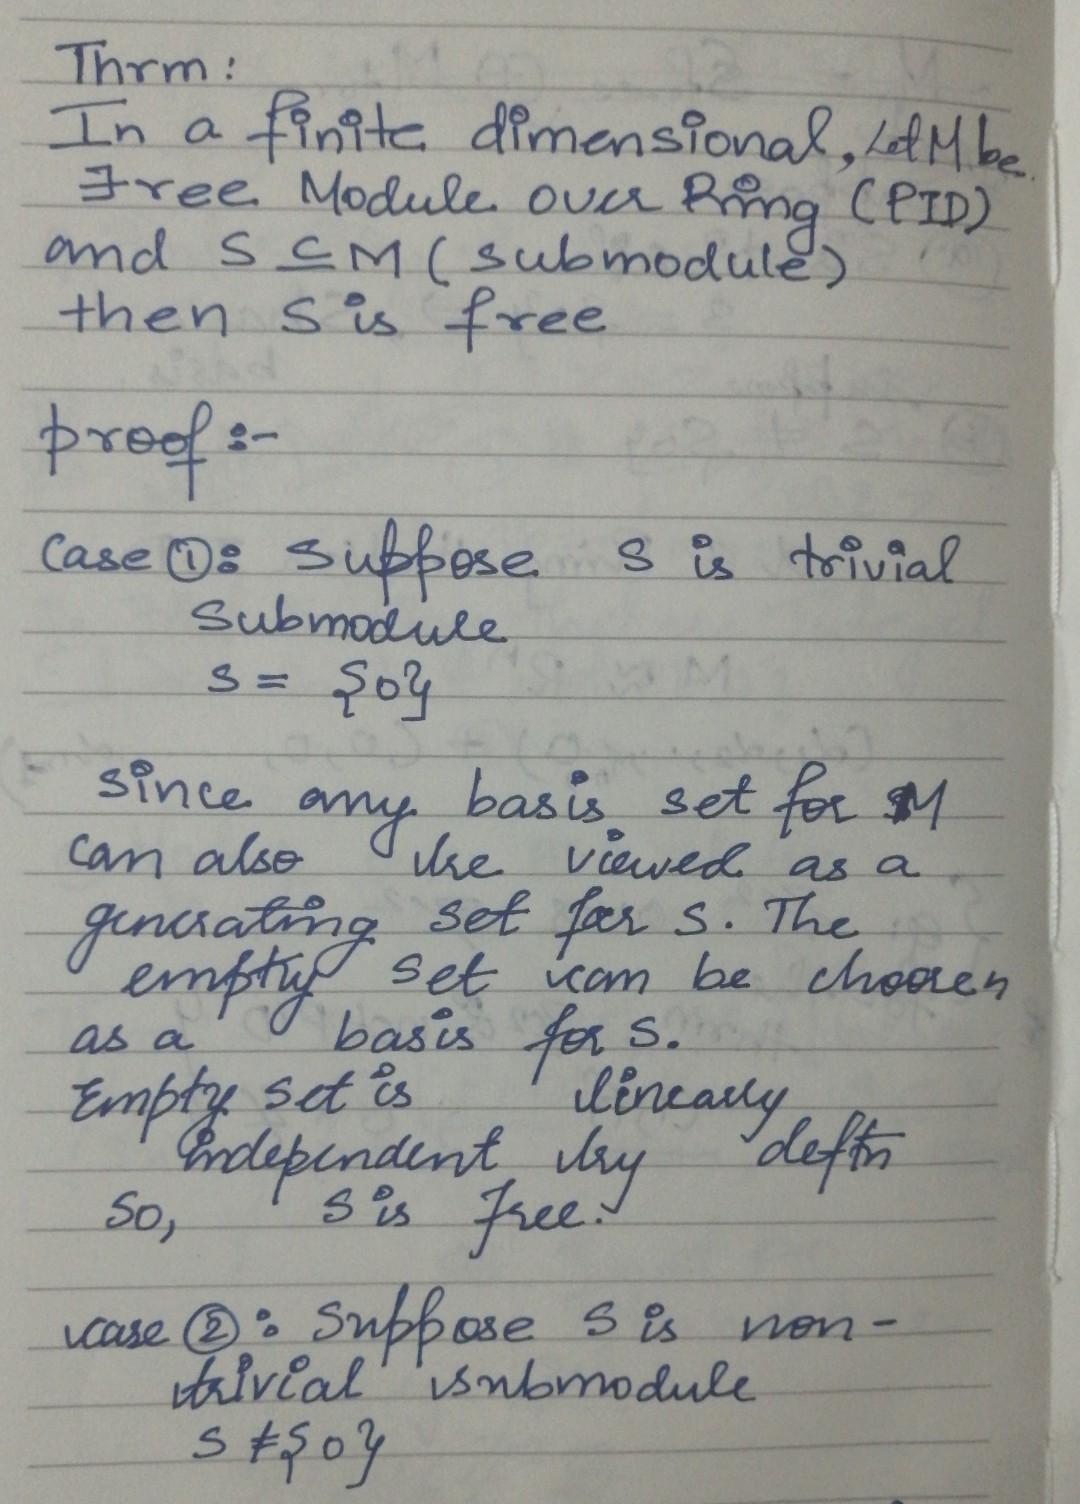 Thrm:
In a finite dimensional, Let M be
Free Module over Ring (PID)
and S ⊆ M (submodule)
then S is free
proof :-
Case ①: Suppose S is trivial
Submodule
S = {0}
Since any basis set for M
can also be viewed as a
generating set for S. The
empty set can be choosen
as a basis for S.
Empty set is linearly
independent by deftn
So, S is Free.
case ②: Suppose S is non-
trivial submodule
S ≠ {0}